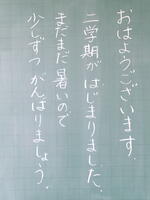 おはようございます。
二学期が はじまりました。
まだまだ暑いので
少しずつ がんばりましょう。